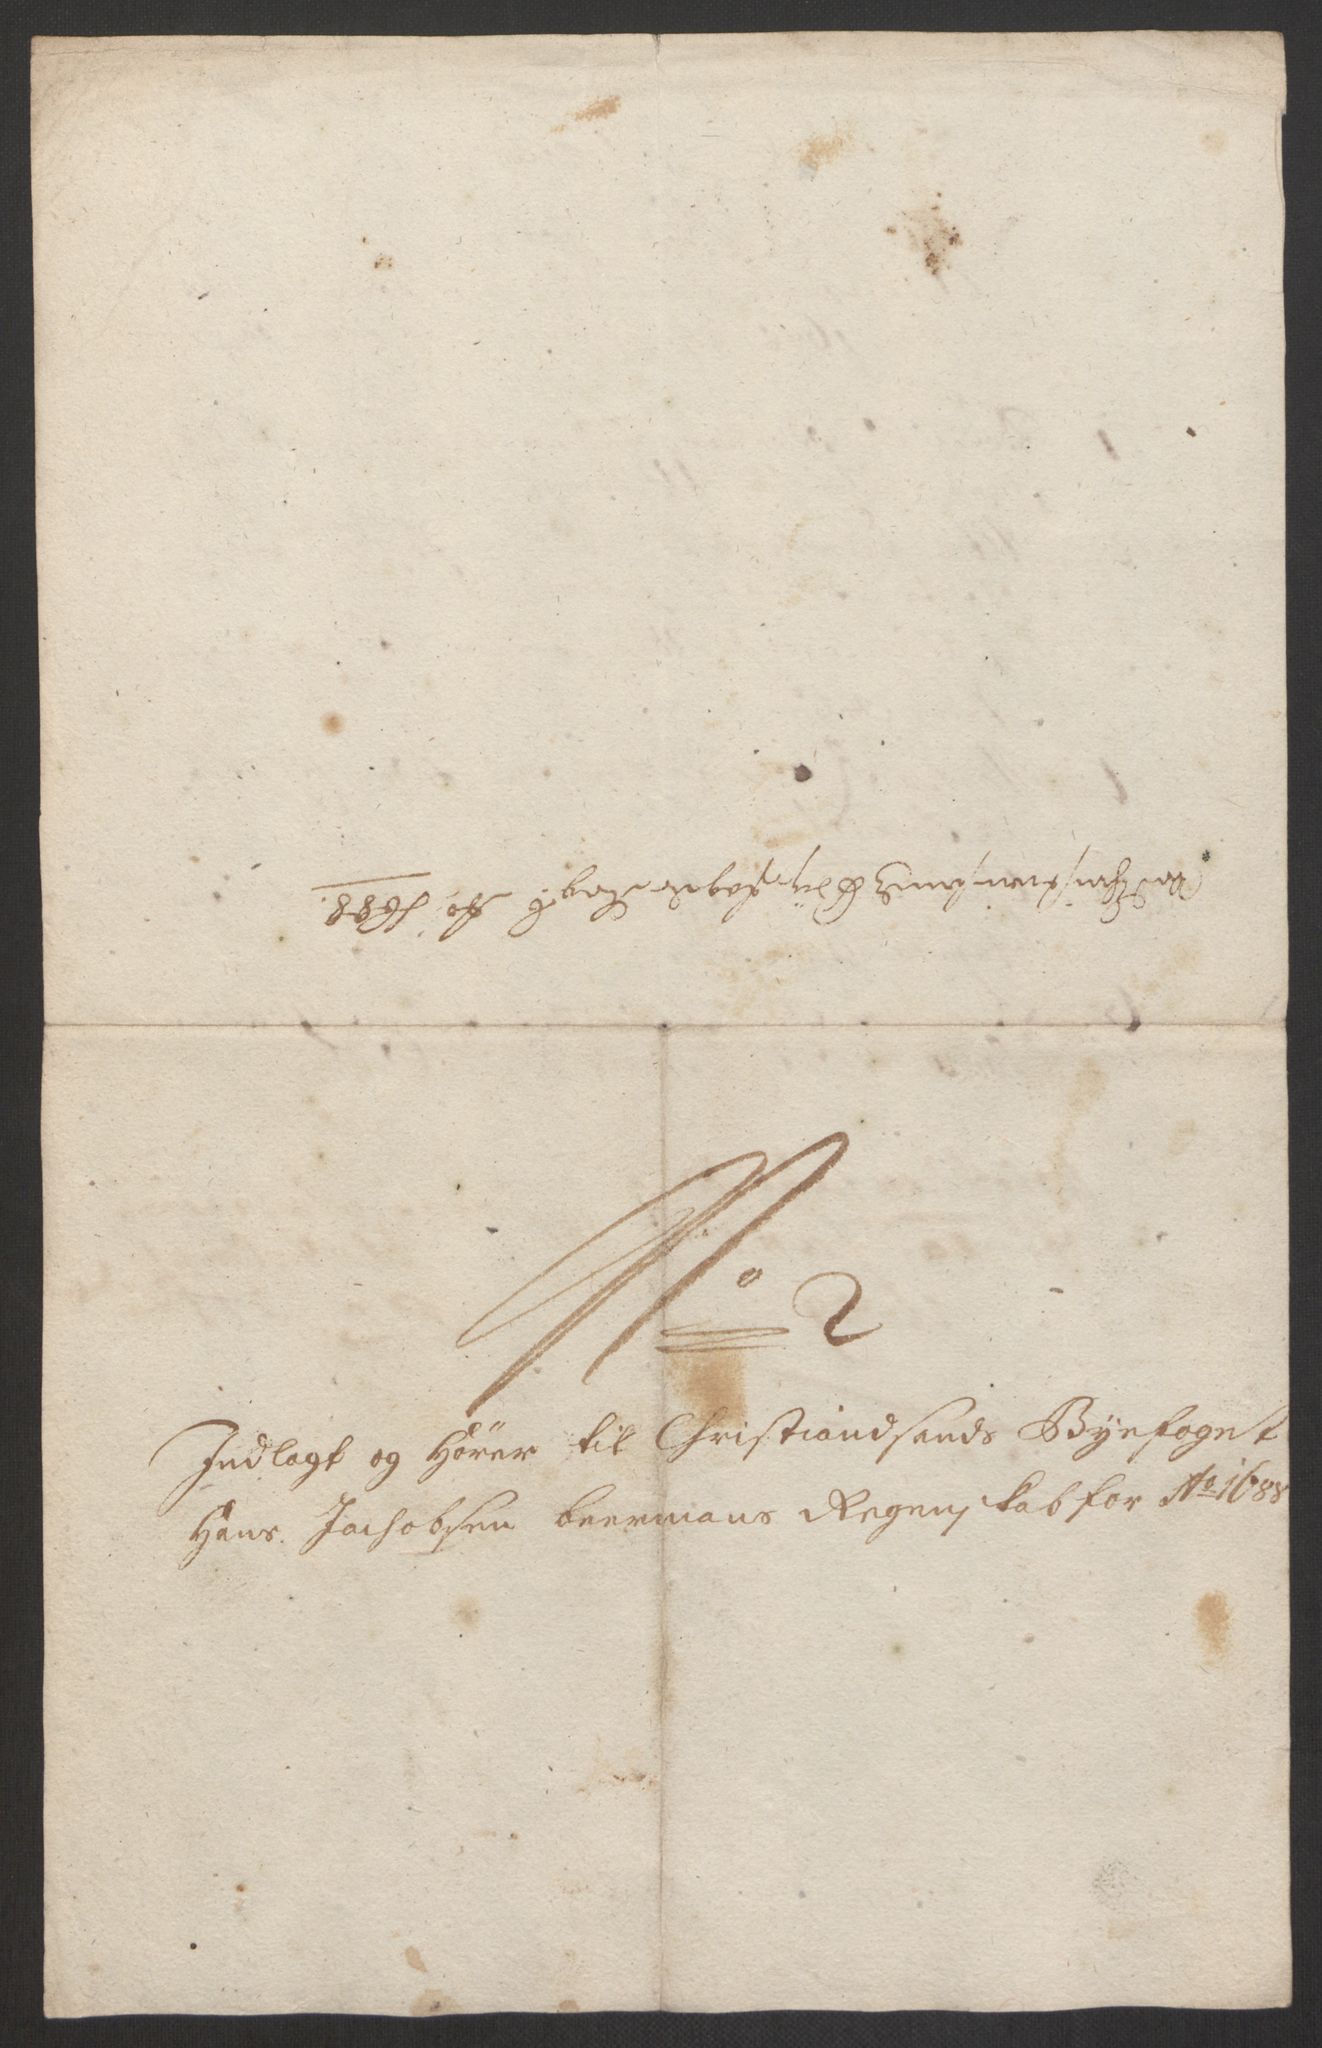 Ao 1688.
No 2
Indlagt og Hörer til Christiandsands Byefoget
Hans Jachobsen beermans Regenskab for Ao 1688